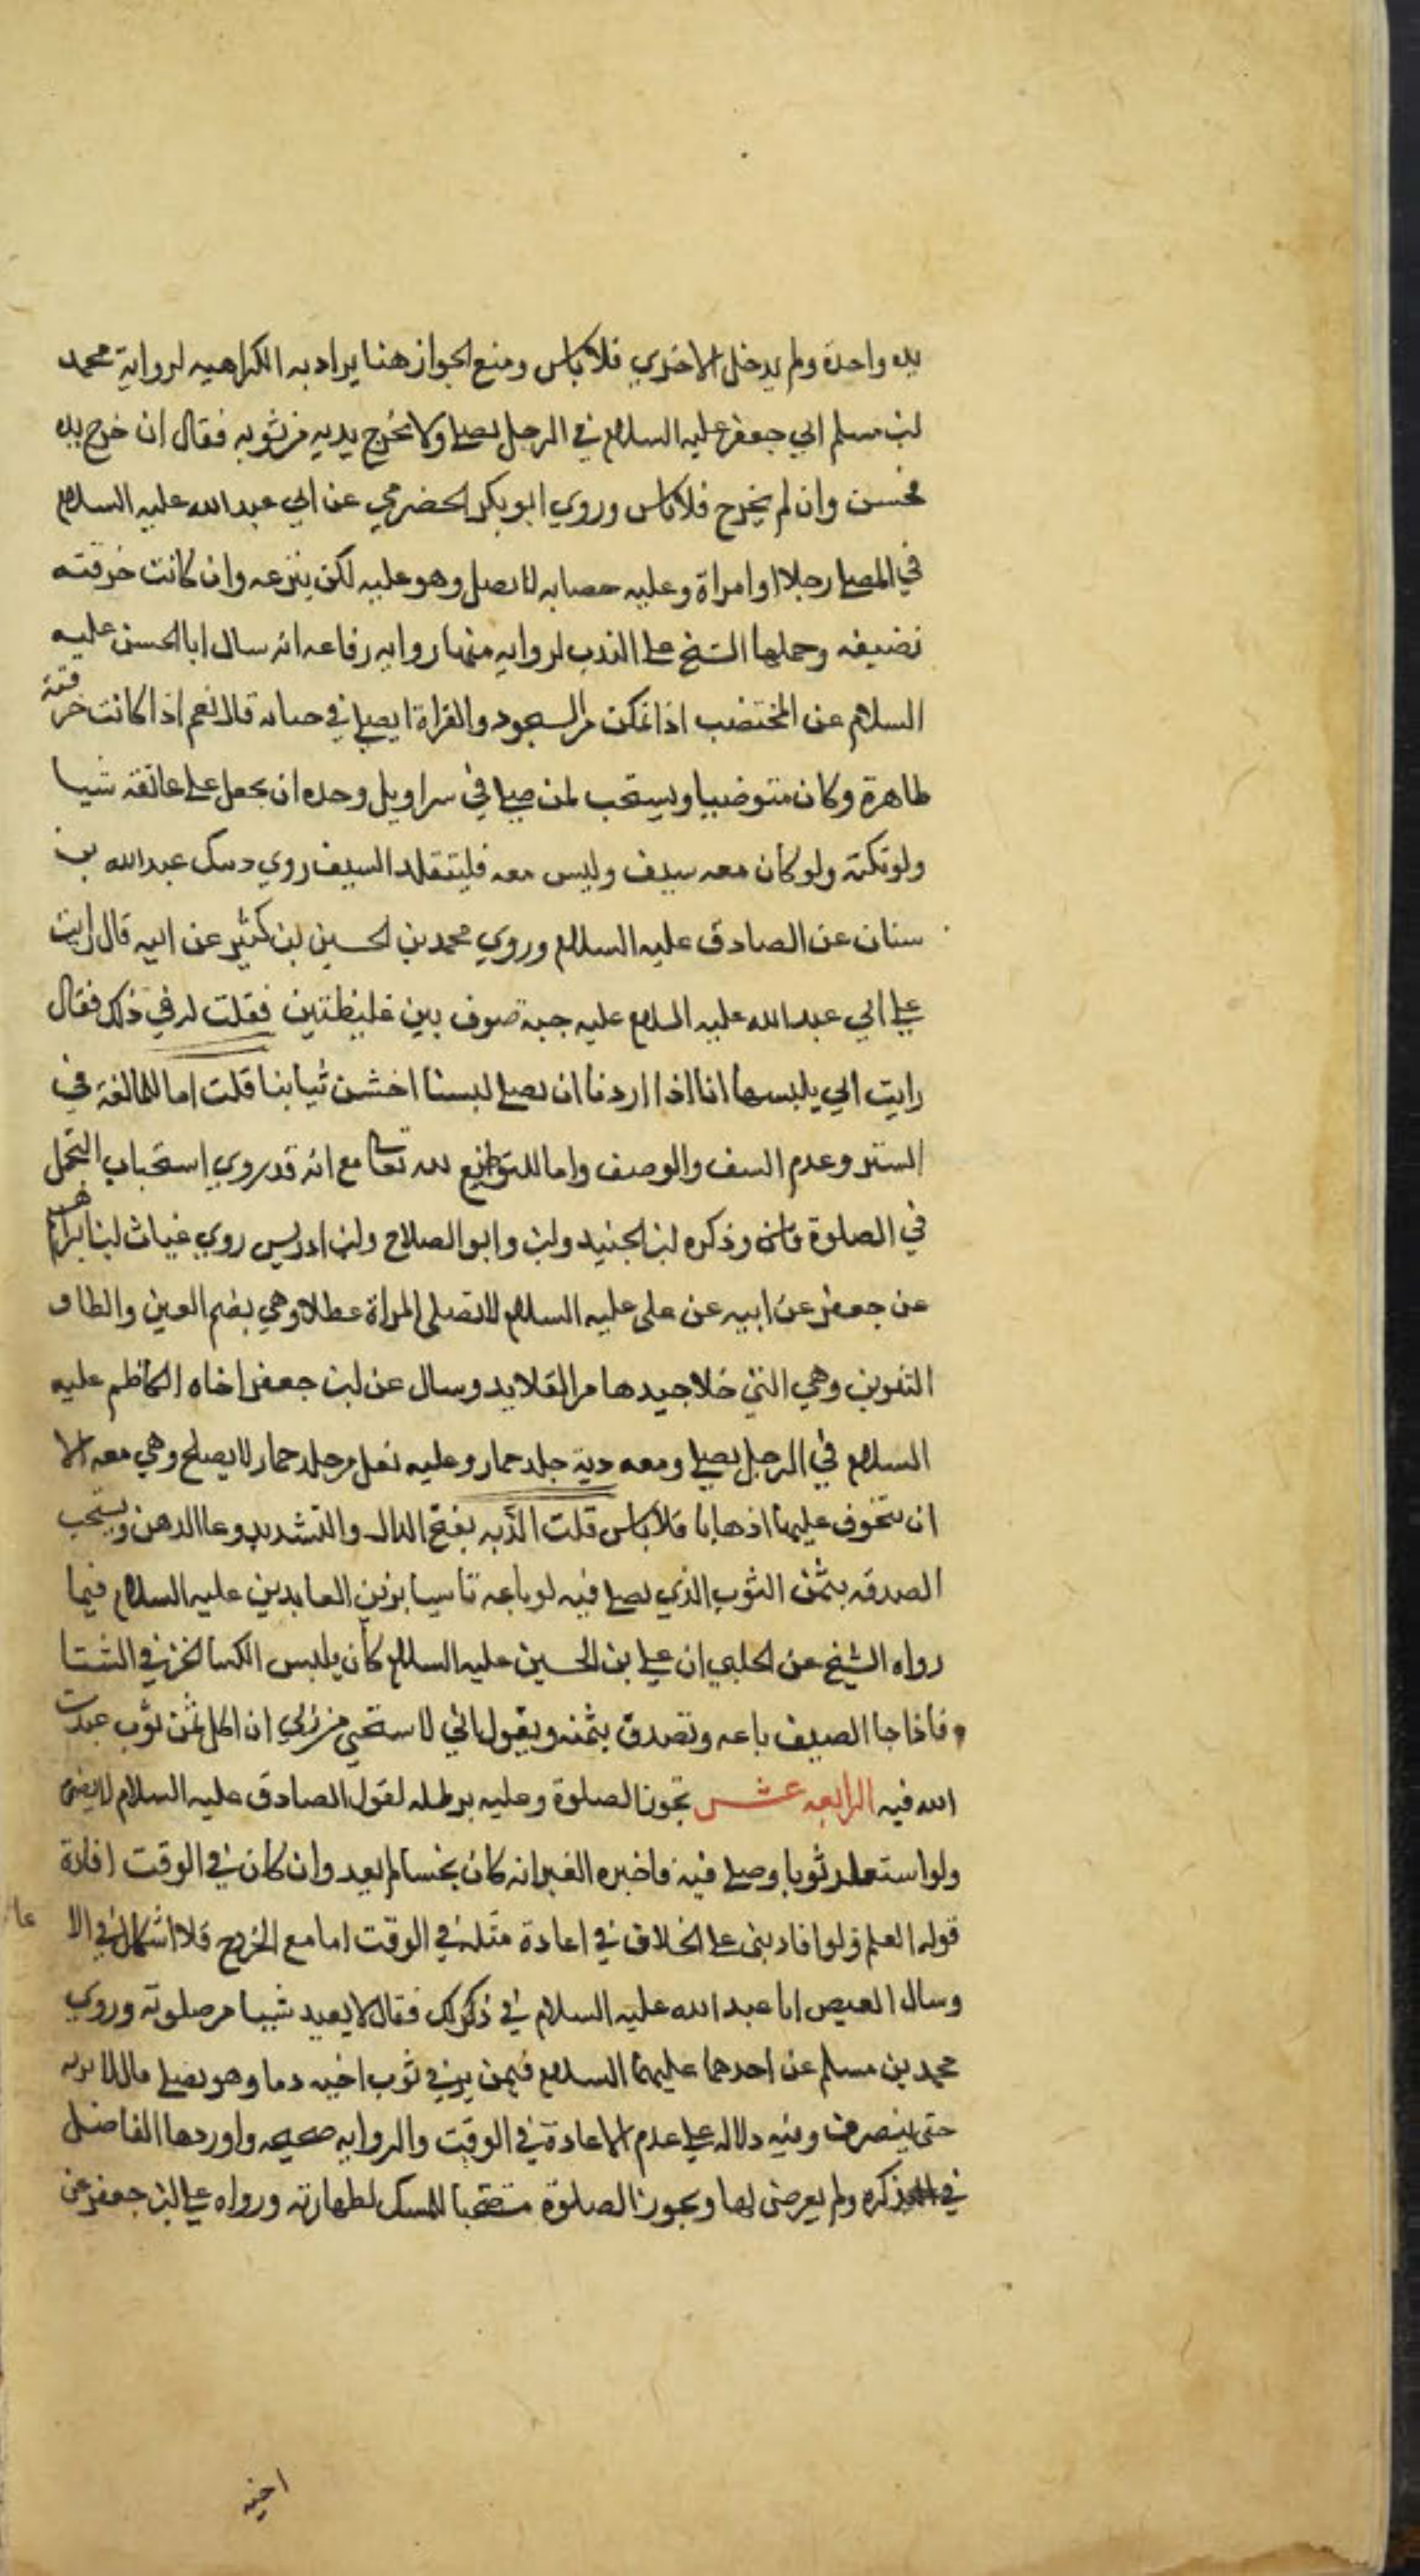 يده واحدة ولم يدخل الاخري فلاباس ومنع الجواز هنا يراد به الكراهيه لرواية محمد
لبن مسلم ابي جعفر عليه السلام في الرجل يصلي ولا يخرج يديه من ثوبه فقال ان خرج يده
فحسن وان لم يخرج فلاباس وروي ابو بكر الحضرمي عن ابي عبدالله عليه السلام
في المصلي رجلا او امراة وعليه حصابه لا يصل وهو عليه لكن ينزعه وان كانت خرقته
نضيفه وحملها الشيخ علي الندب لروايه منها روايه رفاعه انه سال ابا الحسن عليه
السلام عن المختضب اذا تمكن من السجود والقراة ايصلي في حنايه قال نعم اذا كانت خرقته
طاهرة وكان متوضيا ويستحب لمن صلي في سراويل وحده ان يجعل علي عاتقه شيا
ولو تكة ولو كان معه سيف وليس معه فليتقلد السيف روي عبدالله بن
سنان عن الصادق عليه السلام وروي محمد بن الحسين بن كثير عن ابيه قال رايت
علي ابي عبدالله عليه السلام عليه جبة صوف بين غليظتين فقلت له في ذلك فقال
رايت ابي يلبسها انا اذا اردنا ان نصلي لبسنا اخشن ثيابنا قلت اما للمالغة في
الستر وعدم السف والوصف واما للتواضع لله تعالي مع انه قد روي استحباب التجمل
في الصلوة وذكره لبن الجنيد ولبن وابو الصلاح ولبن ادريس روي غياث لبن ابراهيم
عن جعفر عن ابيه عن علي عليه السلام لا تصلي المراة عطلا وهي بضم العين والطاو
التنوين وهي التي خلا جيدها من القلايد وسال عن لبن جعفر اخاه الكاظم عليه
السلام في الرجل يصلي ومعه دبة جلد حمار وعليه نعل من جلد حمار لا يصلح وهي معه الا
ان يتخوف عليها اذهابا فلاباس قلت الدبه بفتح الدال والتشديد وعا الدهن ويستحب
الصدقه بثمن الثوب الذي يصلي فيه لو باعه تاسيا بزين العابدين عليه السلام فيما
رواه الشيخ عن الحلبي ان علي بن الحسين عليه السلام كان يلبس الكسا الخز في الشتا
فاذا جا الصيف باعه وتصدق بثمنه ويقول اني لا ستحيي من ربي ان اكل ثمن ثوب عبدت
الله فيه الرابعه عشر تجوز الصلوة وعليه برطله لقول الصادق عليه السلام لا يضر
ولو استعار ثوبا وصلي فيه فاخبره الغير انه كان نجسا لم يعد وان كان في الوقت افادة
قوله العلم ولو افاد بني علي الخلاف في اعادة مثله في الوقت اما مع الخروج فلا اشكال في الا
وسال العيص ابا عبد الله عليه السلام في ذلك فقال لا يعيد شيا من صلوته وروي
محمد بن مسلم عن احدهما عليهما السلام فيمن يري في ثوب اخيه دما وهو يصلي قال لا يوذنه
حتي ينصرف وفيه دلاله علي عدم الاعادة في الوقت والروايه صحيحه واوردها الفاضل
في ذكره ولم يعرض لها ويجوز الصلوة مستصحبا للمسك لطهارته ورواه علي لبن جعفر عن
اخيه